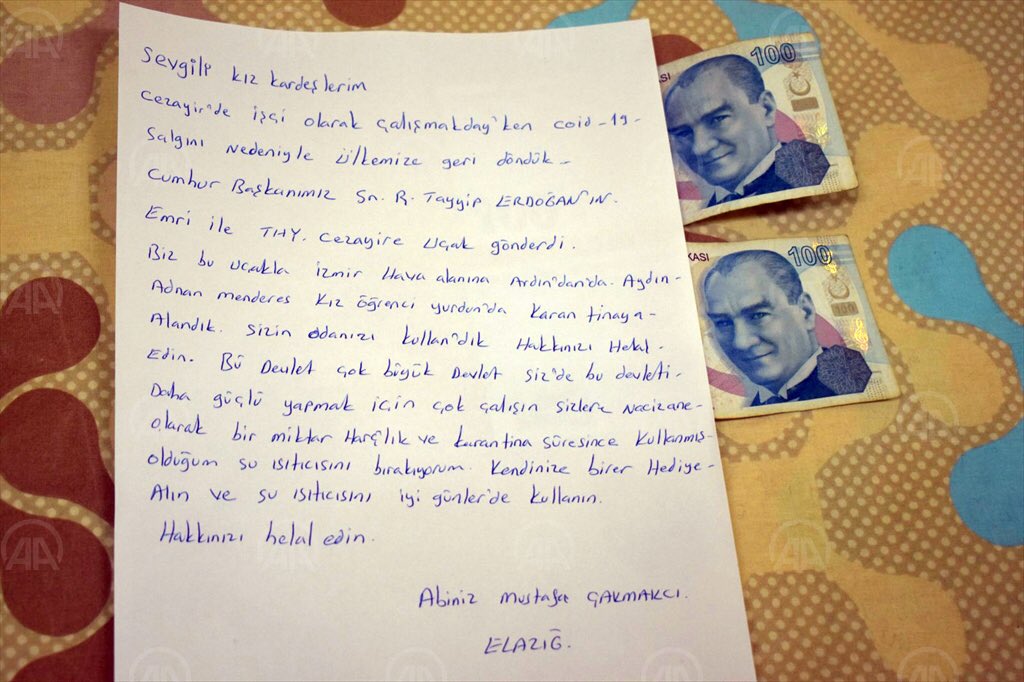 Sevgili kız kardeşlerim
Cezayir'de işçi olarak çalışmakday'ken coid-19-
Salgını nedeniyle Ülkemize geri döndük-
Cumhur Başkanımız Sn. R. Tayyip ERDOĞAN'IN.
Emri ile THY. Cezayire Uçak gönderdi.
Biz bu uçakla izmir Hava alanına Ardın'dan'da. Aydın-
Adnan menderes kız öğrenci yurdun'da Karan tinaya-
Alandık. Sizin odanızı kullan'dık Hakkınızı Helal-
Edin. Bü Devlet çok büyük Devlet siz'de bu devleti-
Daha güçlü yapmak için çok çalışın sizlere Nacizane-
olarak bir miktar Harçlık ve karantina süresince kullanmış-
olduğum su ısıtıcısını bırakıyorum. Kendinize birer Hediye-
Alın ve su ısıtıcısını iyi günler'de kullanın.
Hakkınızı helal edin.
Abiniz Mustafa ÇAKMAKCI.
ELAZIĞ.
100
KASI
100
100
AA